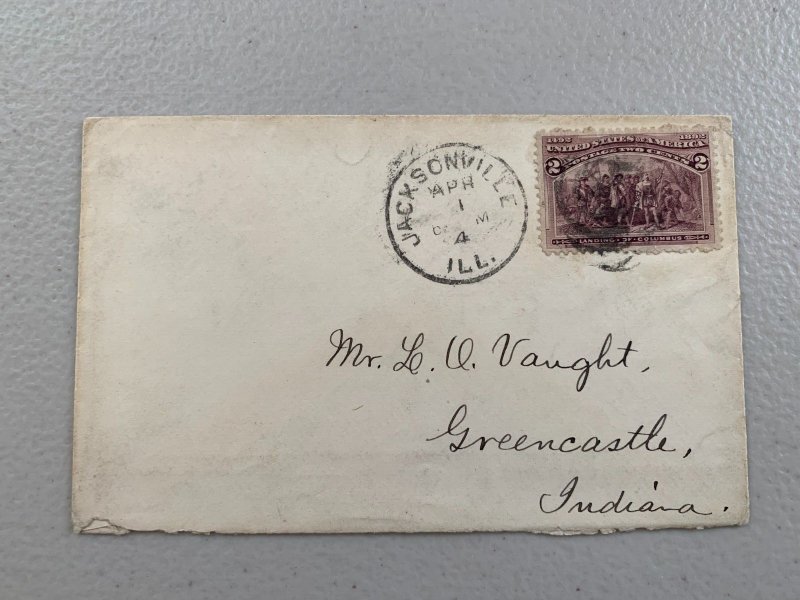 JACKSONVILLE
APR
1
M
4
ILL.
1492 1892
UNITED STATES OF AMERICA
POSTAGE TWO CENTS
2 2
LANDING OF COLUMBUS
Mr. L. O. Vaught,
Greencastle,
Indiana.